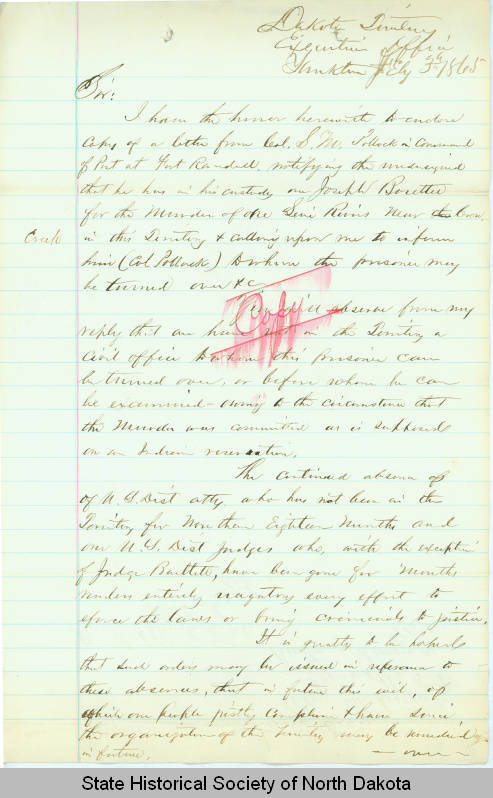 Dakota Territory
Executive Office
Yankton July 25th 1865
Sir:
I have the honor herewith to enclose
Copy of a letter from Col. S. M. Pollock in Command
of Post at Fort Randall, notifying the undersigned
that he has in his custody one Joseph
for the Murder of one near
Creek
in this Territory & calling upon me to inform
him (Col Pollock) to whom the prisoner may
be turned over &c.
Copy
You will observe from my
reply that we have not in the Territory a
Civil officer to whom this prisoner can
be turned over, or before whom he can
be examined - owing to the circumstance that
the Murder was committed as is supposed
on an Indian reservation.
The continued absence of
of U. S. Dist atty, who has not been in the
Territory for More than Eighteen Months and
our U. S. Dist Judges who, with the exception
of Judge Bartlett, have been gone for Months
renders entirely nugatory every effort to
eforce the laws or bring criminals to justice.
It is greatly to be hoped
that such orders may be issued in reference to
these absences, that in future this evil, of
which our people justly complain & have since
the organization of the Territory may be remedied
in future.
- over -
State Historical Society of North Dakota